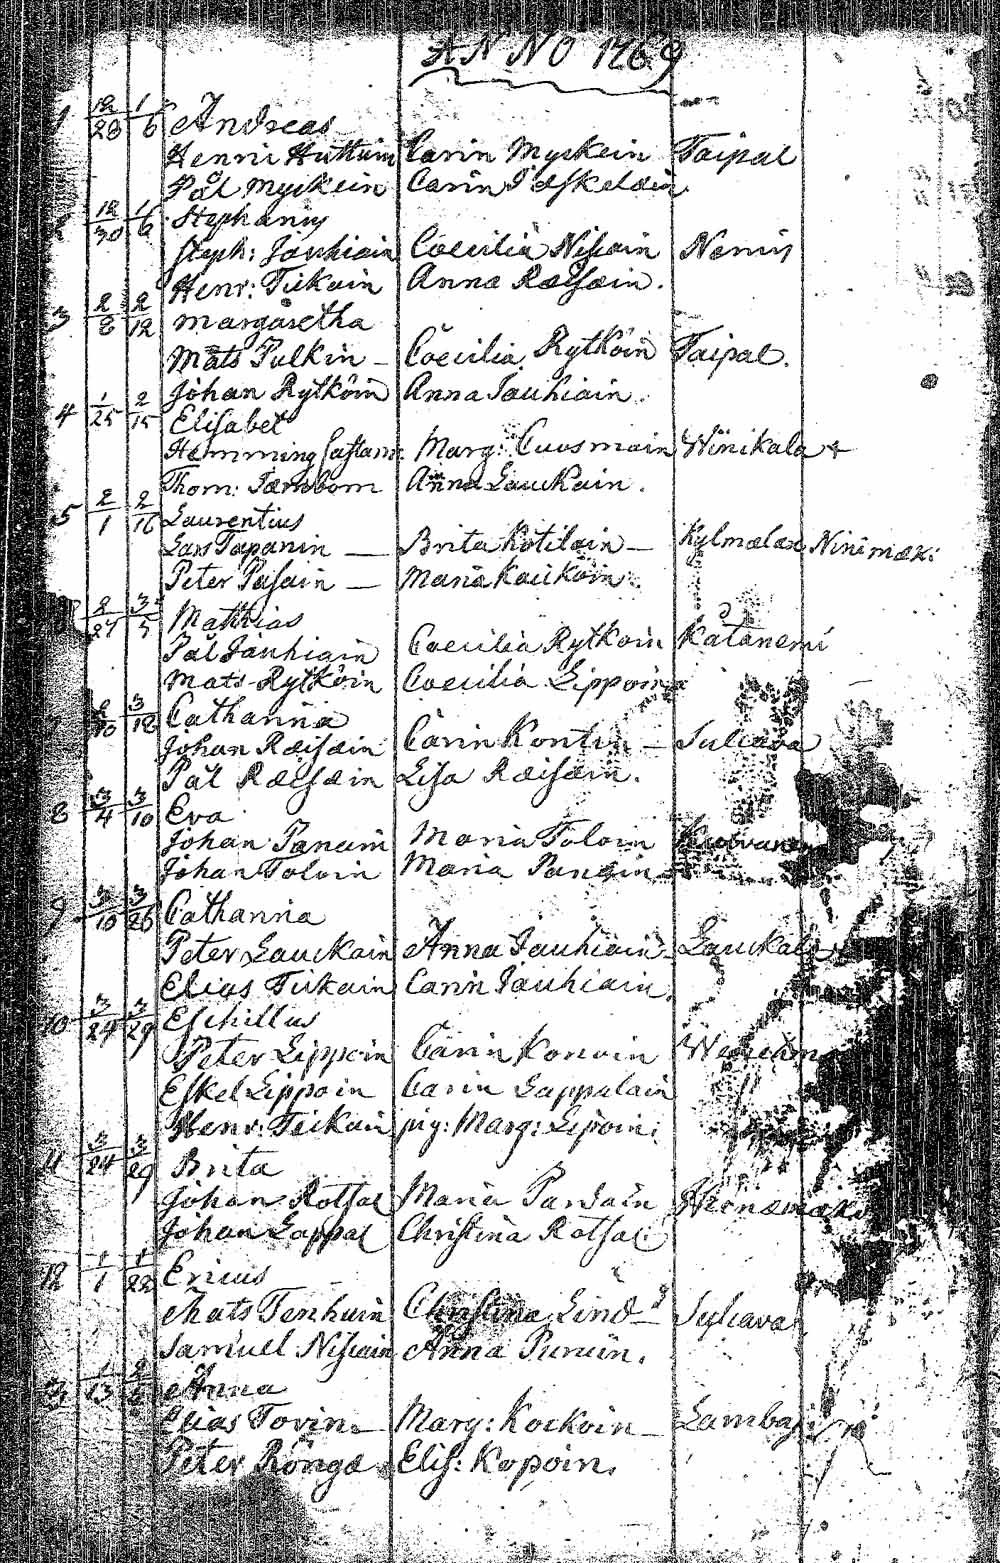 ANNO 1769
1 12/28 1/6 Andreas
Henric Huttuin Carin Myskein Taipal
Pål Myskein Carin Pæskeläin
2 12/30 1/6 Stephanus
Steph: Jauhiain Coecilia Nisiain Nemis
Henr: Tiikain Anna Ræisæin.
3 2/8 2/12 Margaretha
Mats Pulkin – Coecilia Rytköin Taipal.
Johan Rytköin Anna Jauhiain.
4 1/25 2/15 Elisabet
Hemming Castani: Marg: Cuosmain Winikala
Thom: Tærnbom Anna Lauckain.
5 2/1 2/16 Laurentius
Lars Tapanin — Brita Kotilain – Kylmælax Ninimæki
Peter Pasain — Maria Kaukoin.
2/27 3/5 Matthias
Pål Jauhiain Coecilia Rytkoin Katanemi
Mats Rytköin Coecilia Lippoin
3/12 Catharina
Johan Ræisæin Carin Kontin – Sulcava
Pål Ræisæin Lisa Ræisæin.
8 3/4 3/10 Eva
Johan Panain Maria Tolvin
Johan Tolvin Maria Panain
9 3/10 3/26 Catharina
Peter Lauckain Anna Jauhiain Lauckala
Elias Tiikain Carin Jauhiain.
10 3/24 3/29 Eschillus
Peter Lippoin Carin Konoin
Eskel Lippoin Carin Lappalain
Henr: Tiikain pig: Marg: Lipoin:
11 3/24 3/29 Brita
Johan Rotsal Maria Pardain
Johan Lappal Christina Rotsal
12 1/1 1/22 Ericus
Mats Tenhuin Christina Lind – Sulcava
Samuel Nisiain Anna Punain.
1/13 Anna
Elias Tovin – Marg: Kockoin – Lambasi
Peter Rönga Elis: Kopoin.